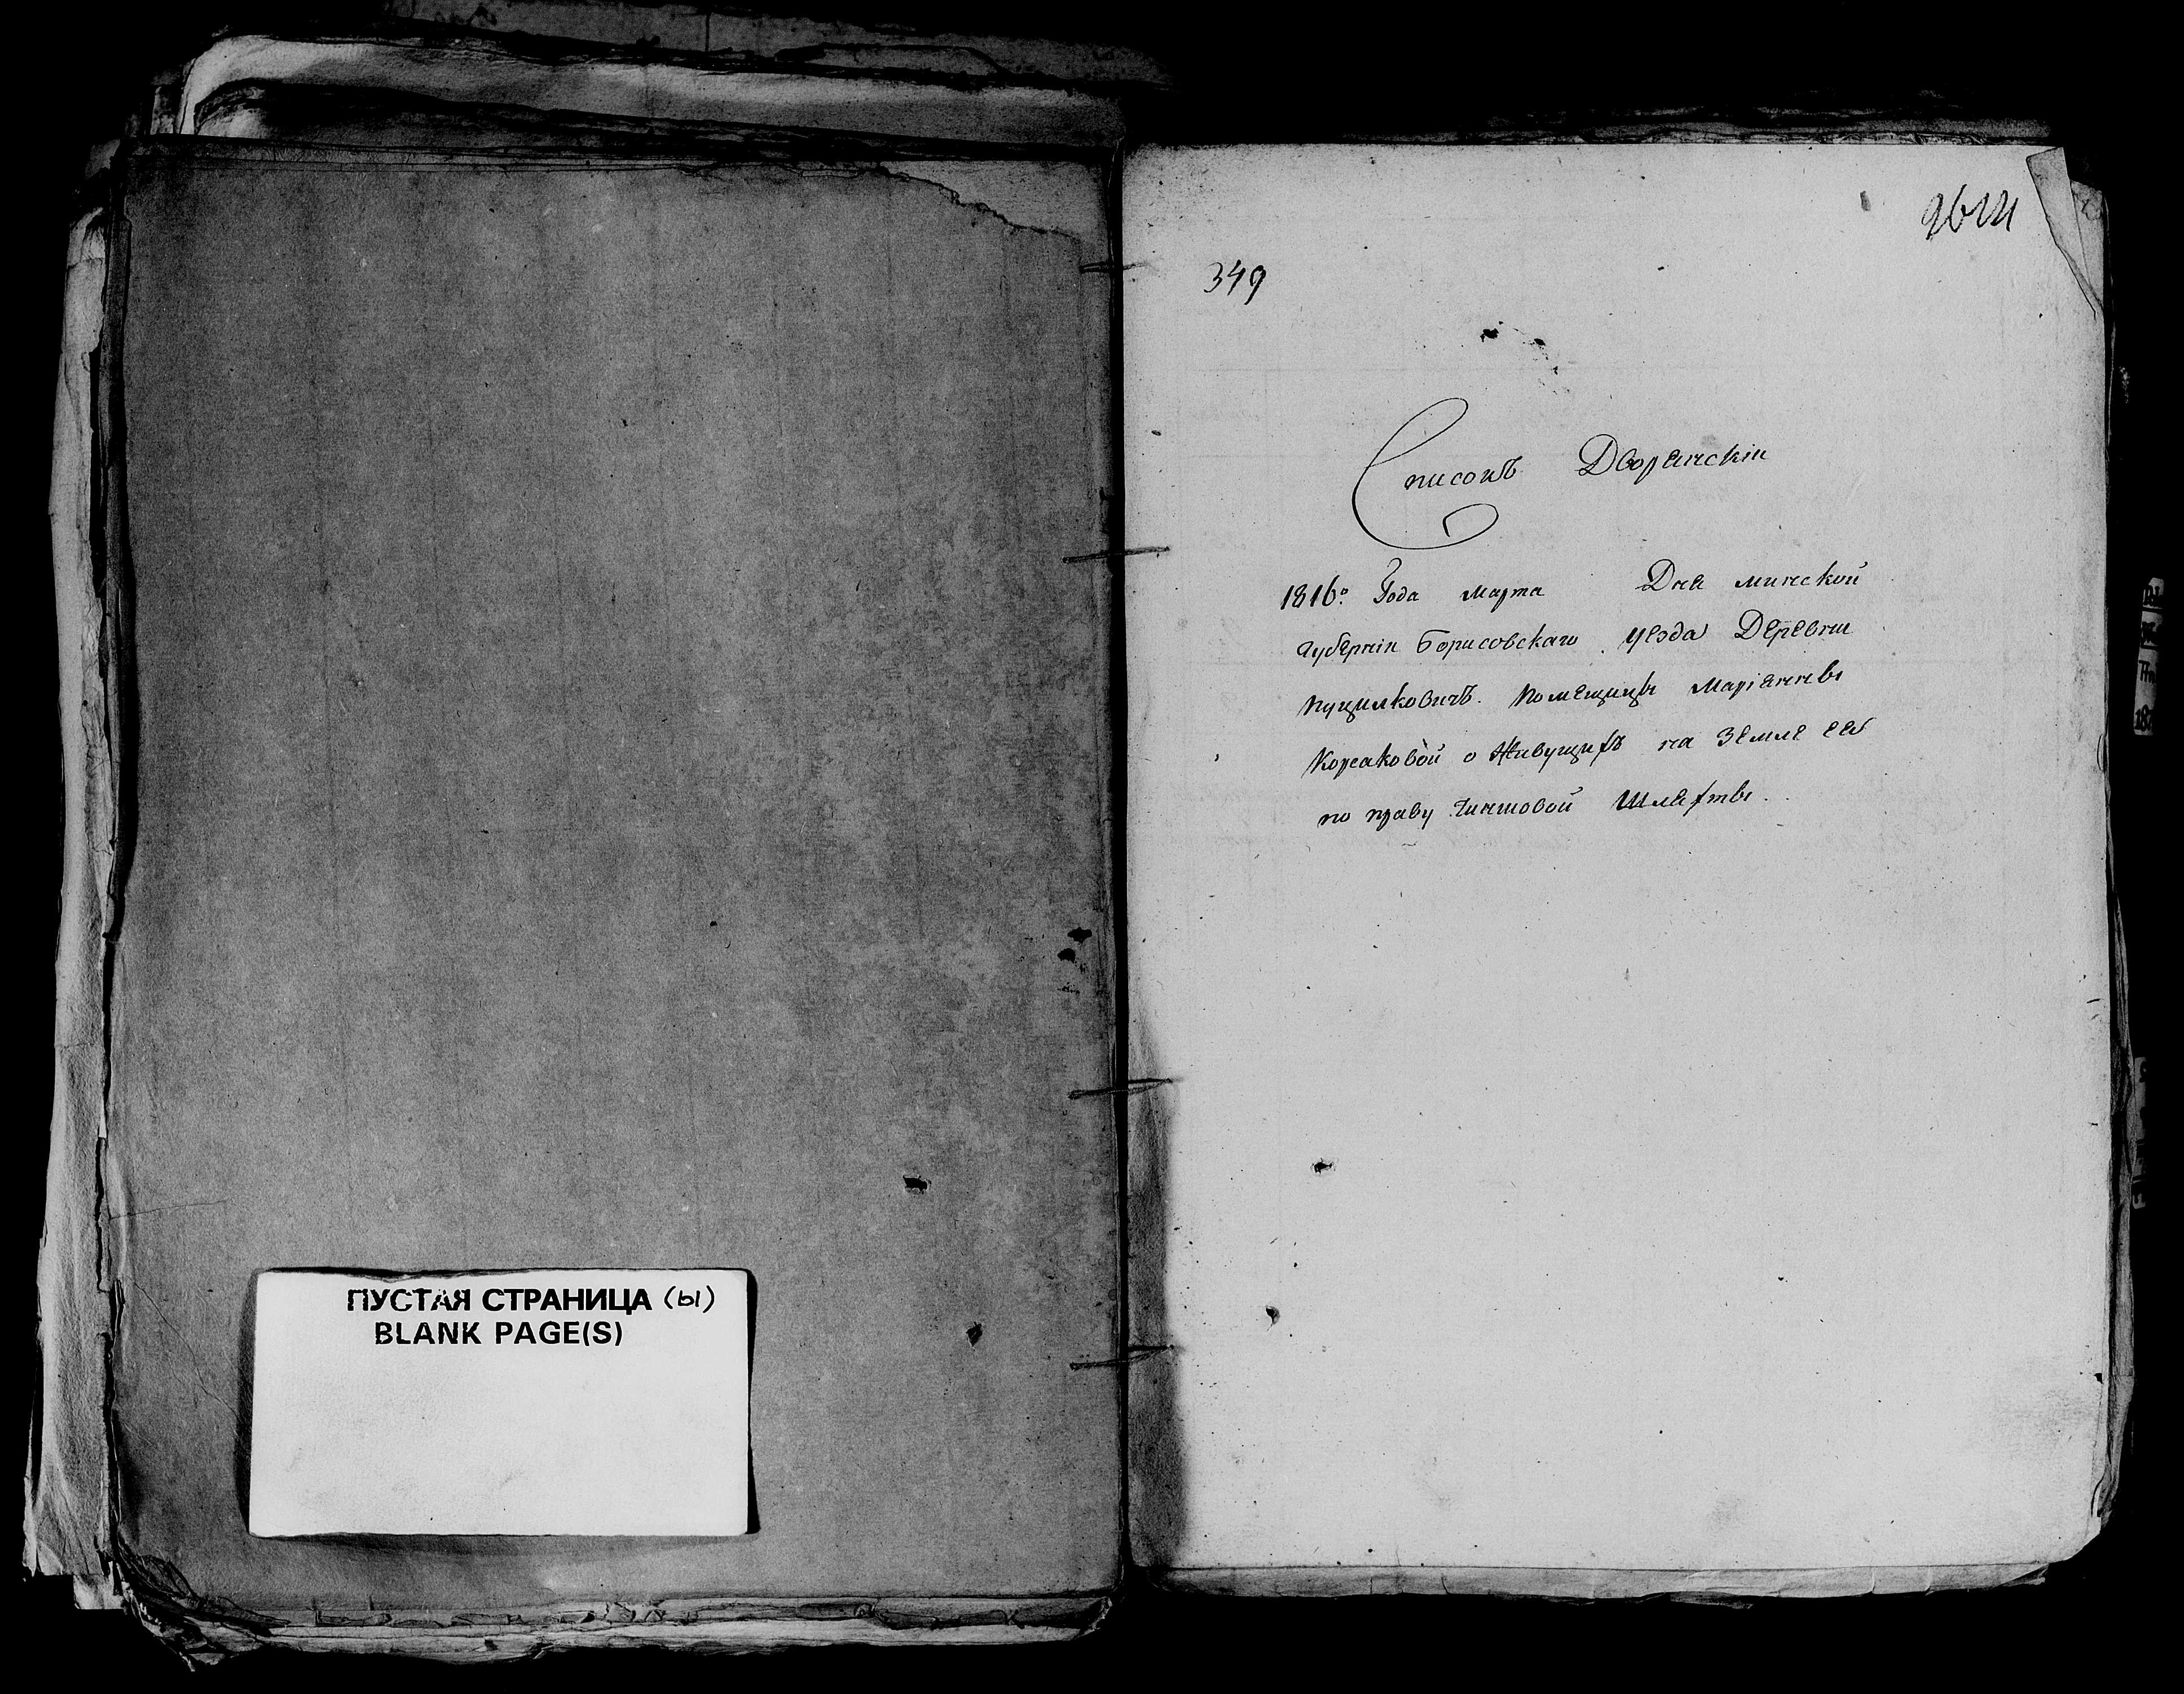 ПУСТАЯ СТРАНИЦА (Ы)
BLANK PAGE(S)
349
Списокъ Дворянскіи
1816º. Года Марта Дня минской
губерніи Борисовскаго уезда Деревни
Пуцилковичъ. Помещицы Маріянны
Корсаковой о Живущихъ на Земле ея
по праву Чиншовой Шляхты.